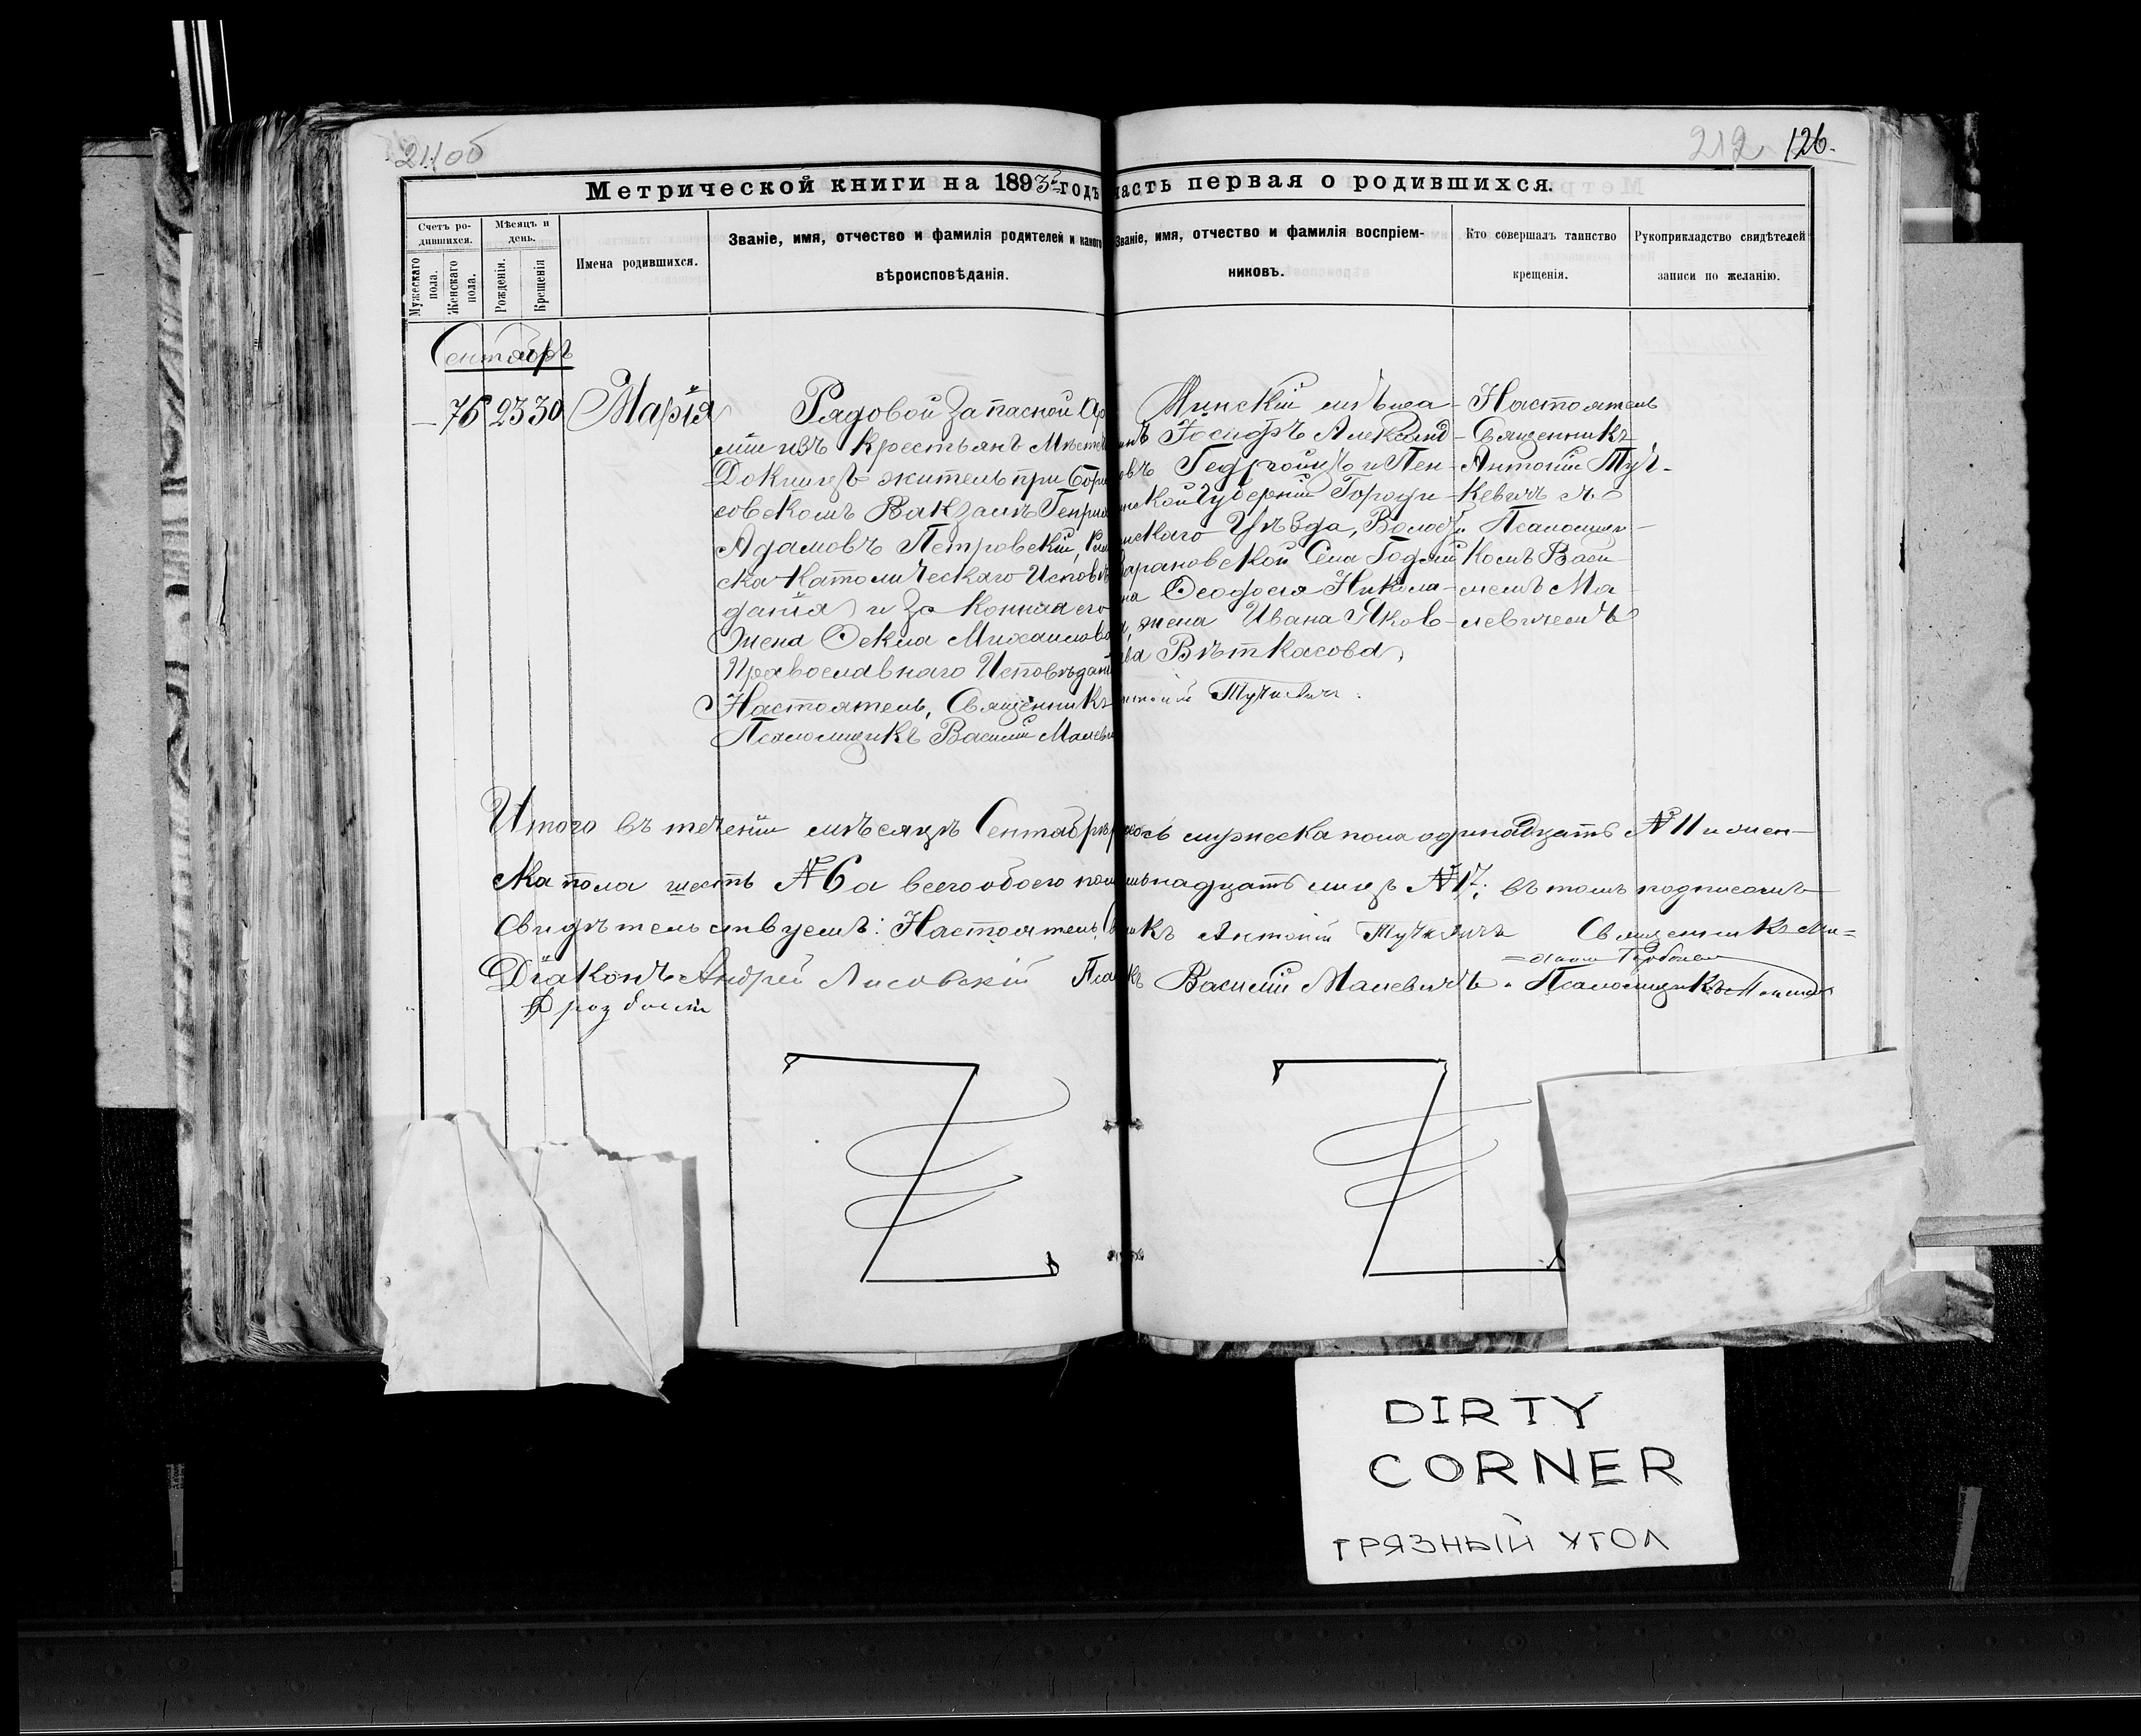 211 об
212 126.
Метрической книги на 1893 годъ
часть первая о родившихся.
Счетъ родившихся.
Мужескаго пола.
Женскаго пола.
Мѣсяцъ и день.
Рожденія.
Крещенія
Имена родившихся.
Званіе, имя, отчество и фамилія родителей и какого
вѣроисповѣданія.
Званіе, имя, отчество и фамилія воспріем-
никовъ.
Кто совершалъ таинство
крещенія.
Рукоприкладство свидѣтелей
записи по желанію.
Сентябрь
— 76 23 30 Марія
Рядовой запасной Ар
міи изъ крестьянъ Мѣстеч
Докшицъ житель при Бори
совскомъ Вакзалѣ Генрих
Адамовъ Петровскій, Рим
ска Католическаго Исповѣ
данія и законная его
жена Ѳекла Михаилова
Православнаго Исповѣдані
Настоятель, Священникъ
Псаломщикъ Василій Малеви
Минскій мѣща-
инъ Іосифъ Александ-
овъ Гедройцъ и Пен-
нской Губерніи Городи-
искаго Уѣзда, Волос.
Барановской Села
на Ѳеодосія Никола-
жена Ивана Яков-
ва Вѣткасова,
нтоній Тучкевичъ.
Настоятель
Священникъ
Антоній Туч-
кевичъ съ
Псаломщи-
комъ Васи-
лемъ Ма-
левичемъ
Итого въ теченіи мѣсяцѣ Сентябрѣ лось мужеска пола одинадцать № 11 и жен-
ска пола шесть № 6 а всего обоего пол мьнадцать лицъ № 17: въ томъ подписомъ
свидѣтельствуемъ: Настоятель, Св икъ Антоній Тучкевичъ Священникъ Ми=
Діаконъ Андрей Лисовскій Пса къ Василій Малевичъ. Псаломщикъ
DIRTY
CORNER
ГРЯЗНЫЙ УГОЛ